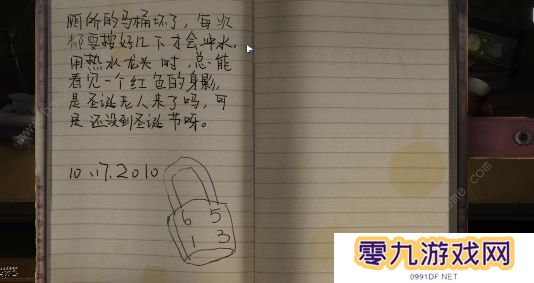 厕所的马桶坏了，每次
都要按好几下才会冲水，
用热水龙头时，总能
看见一个红色的身影，
是圣诞老人来了吗，可
是还没到圣诞节呀。
10.17.2010
6 5
1 3
零九游戏网
0991DF.NET